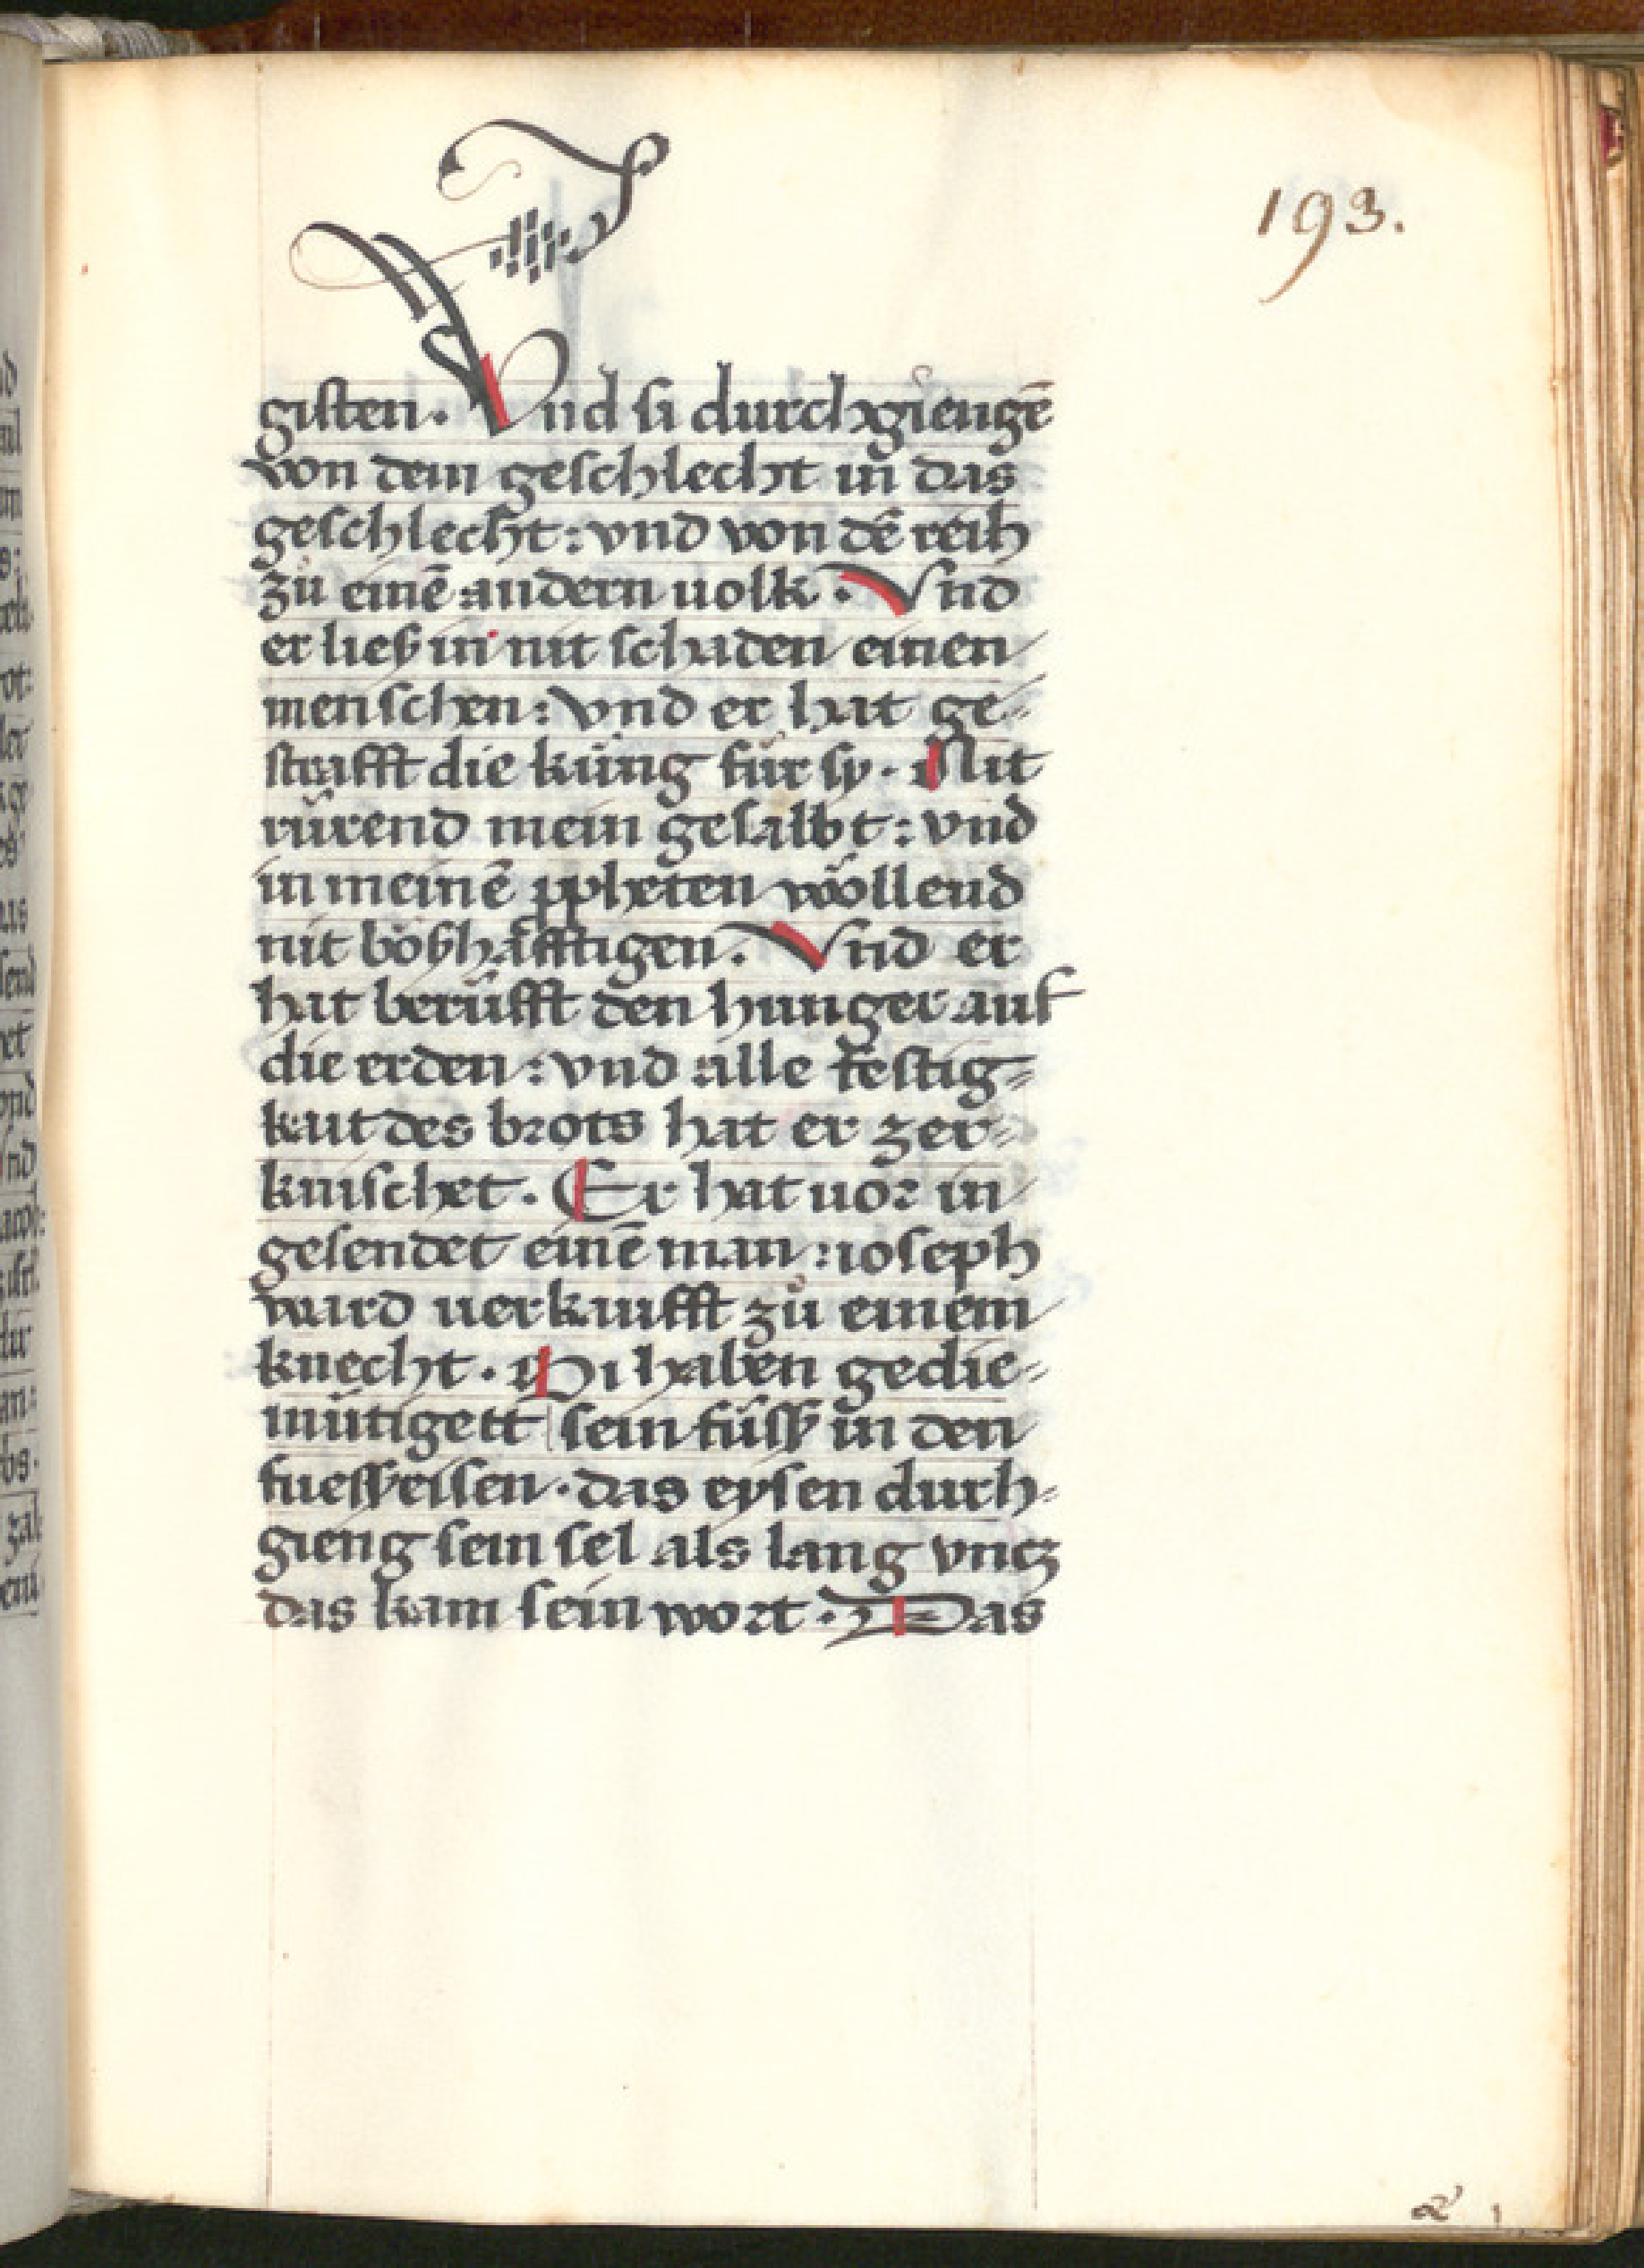 193.
gisten. Vnd si durchgiengē
von dem geschlecht in das
geschlecht: vnd von dē reih
zů einē andern uolk. Vnd
er ließ in nit schaden einen
menschen: vnd er hat ge-
strafft die küng für sy. Nit
rürend mein gesalbt: vnd
in meinē ꝓpheten wöllend
nit bößhafftigen. Vnd er
hat berüfft den hunger auf
die erden: vnd alle festig-
kait des brots hat er zer-
knischet. Er hat uor in
gesendet einē man: ioseph
ward uerkaufft zů einem
knecht. Si haben gedie-
mütigett sein füß in den
fuesseisen. das eysen durh-
gieng sein sel als lang vncz
das kam sein wort. Das